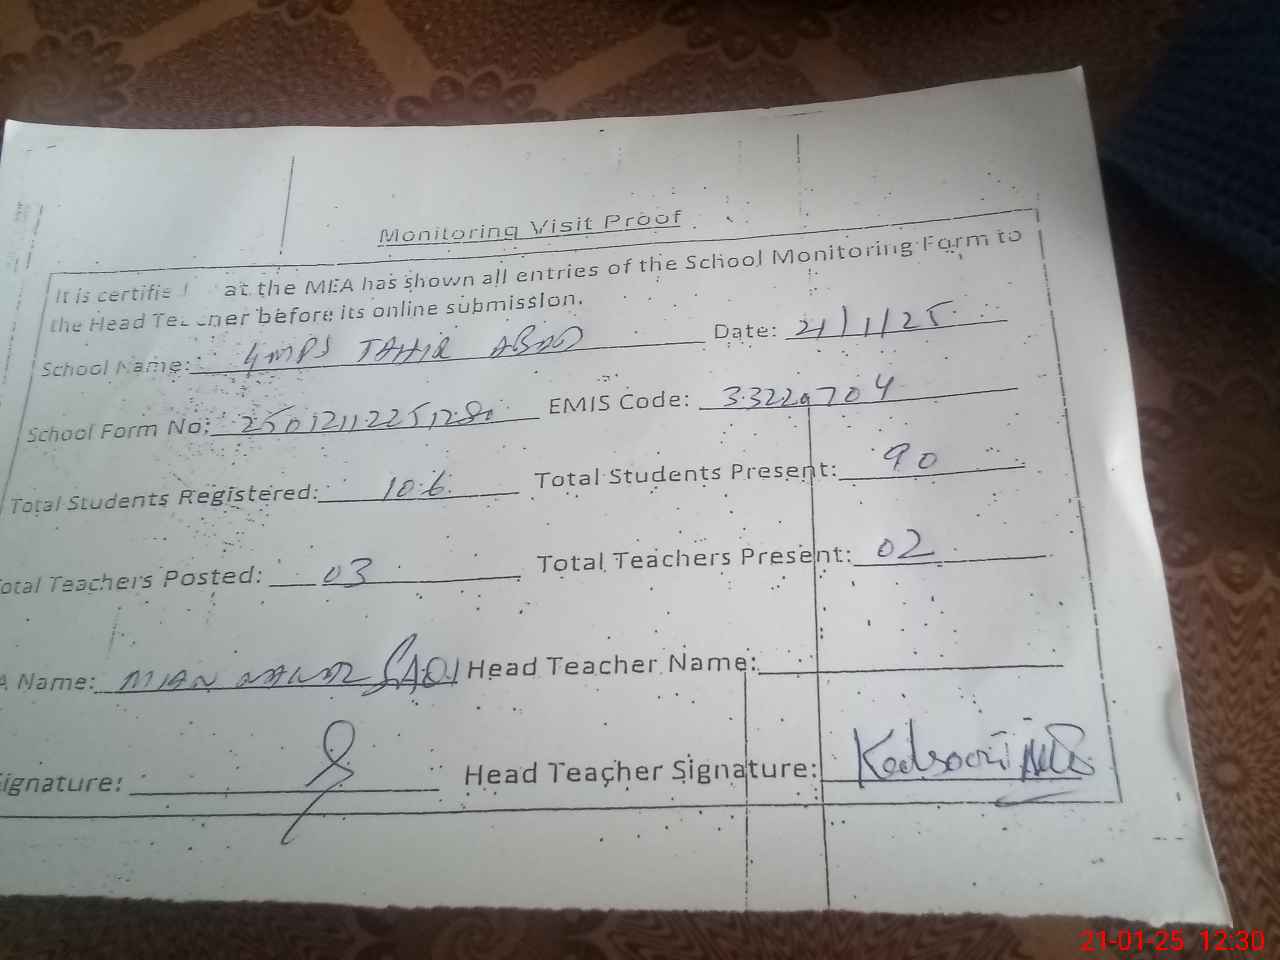 Monitoring Visit Proof
It is certifie at the MEA has shown all entries of the School Monitoring Form to
the Head Teacher before its online submission.
School Name: GMPS TAHIR ABAD Date: 21/1/25
School Form No: EMIS Code: 33229704
Total Students Registered: 106 Total Students Present: 90
otal Teachers Posted: 03 Total Teachers Present: 02
A Name: MIAN Head Teacher Name:
ignature: Head Teacher Signature:
21-01-25 12:30